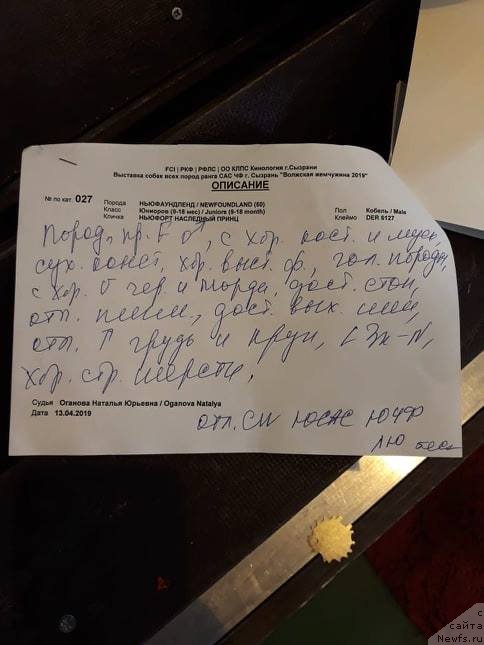 FCI | РКФ | РФЛС | ОО КЛПС Кинология г.Сызрани
Выставка собак всех пород ранга САС ЧФ г. Сызрань "Волжская жемчужина 2019"
ОПИСАНИЕ
№ по кат. 027
Порода НЬЮФАУНДЛЕНД / NEWFOUNDLAND (50)
Класс Юниоров (9-18 мес) / Juniors (9-18 month)
Кличка НЬЮФОРТ НАСЛЕДНЫЙ ПРИНЦ
Пол Кобель / Male
Клеймо DER 5127
Пород, пр. F ♂, с хор. кост. и
сух. конст, хор. выст. ф, гол. породн,
с хор. чер. и морда, дост. стоп,
отл. пигм, дост. вых. шеи,
отл. грудь и круп,
хор. стр. шерсти,
Судья Оганова Наталья Юрьевна / Oganova Natalya
Дата 13.04.2019
отл. CW ЮСАС ЮЧФ
ЛЮ
с
сайта
Newfs.ru